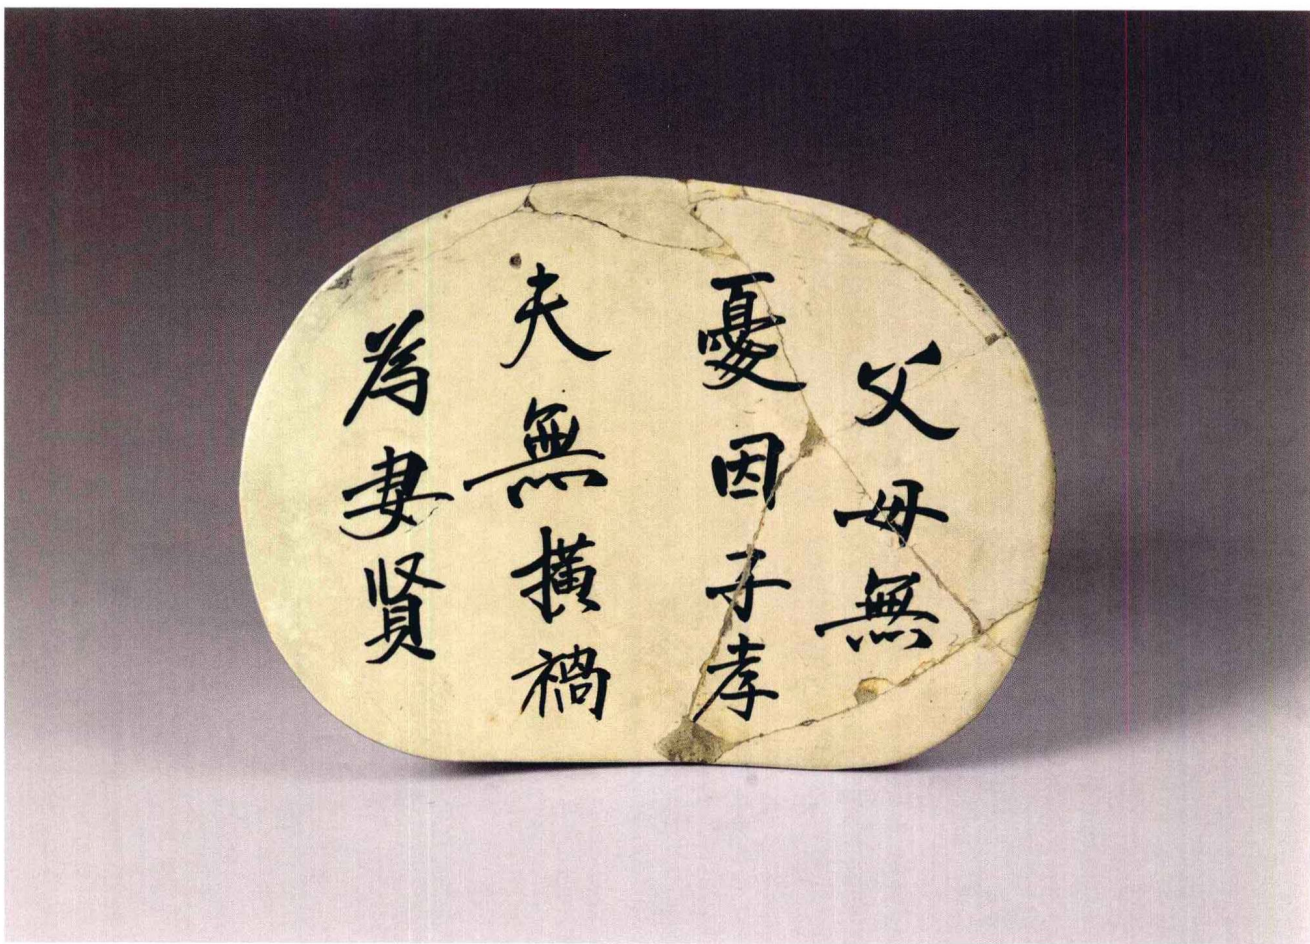 父母無
憂因子孝
夫無横禍
為妻贤